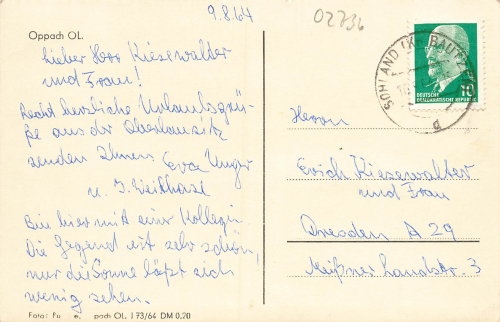 9.8.64
02736
Oppach OL.
Lieber Herr Kiesewalter
und Frau!
Recht herzliche Urlaubsgrü-
ße aus der Oberlausitz
senden Ihnen
Eva Unger
u. I. Weikhase
Bin hier mit einer Kollegin
Die Gegend ist sehr schön,
nur die Sonne läßt sich
wenig sehen.
Foto: Fu pach OL. I 73/64 DM 0.20
SOHLAND (KR. BAUTZEN)
DEUTSCHE
DEMOKRATISCHE REPUBLIK
10
a
Herrn
Erich Kiesewalter
und Frau
Dresden A 29
Meißner Landstr. 3